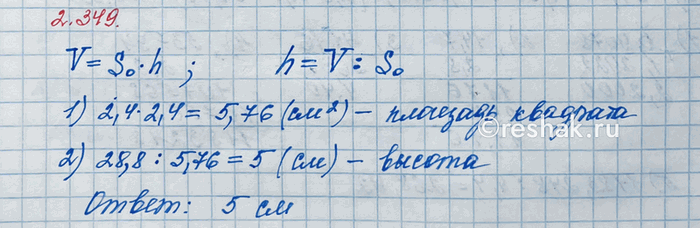 2.349.
V = S₀ · h ; h = V : S₀
1) 2,4 · 2,4 = 5,76 (см²) – площадь квадрата
©reshak.ru
2) 28,8 : 5,76 = 5 (см) – высота
Ответ: 5 см